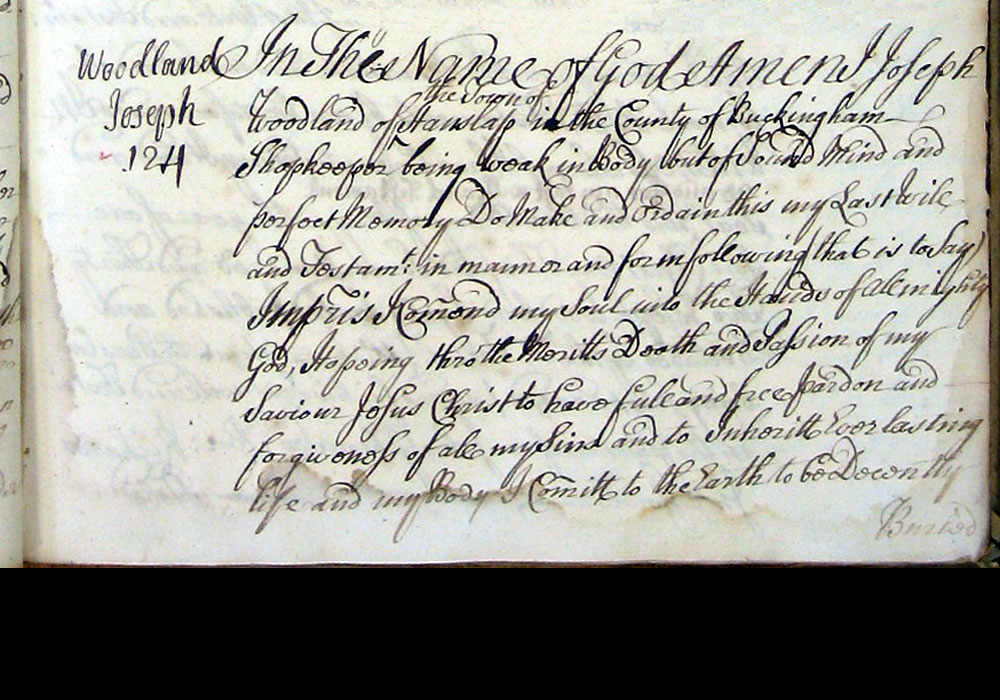 Woodland
Joseph
124
In The Name of God Amen I Joseph
the Town of
Woodland of Hanslap in the County of Buckingham
Shopkeeper being weak in Body but of Sound Mind and
perfect Memory Do Make and Ordain this my Last Will
and Testamt: in manner and form following (that is to Say)
Impris I Comend my Soul into the Hands of Allmighty
God, Hopeing thro the Meritts Death and Passion of my
Saviour Jesus Christ to have full and free pardon and
forgiveness of all my Sins and to Inheritt Everlasting
life and my Body I Comitt to the Earth to be Decently
Buried